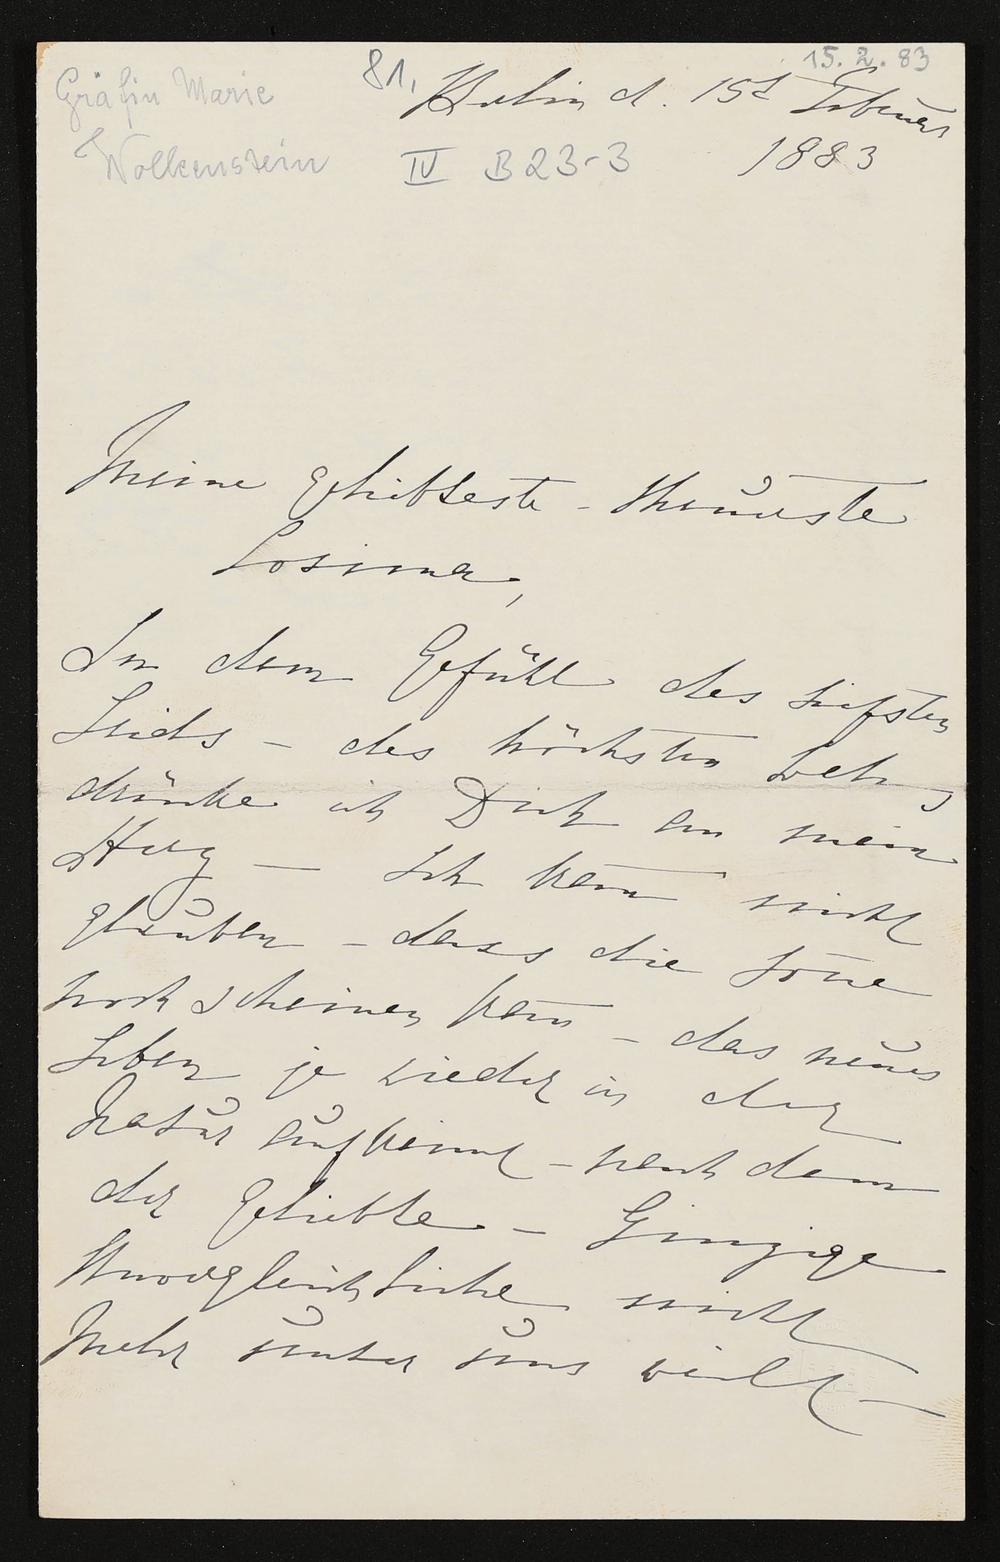 15. 2. 83
Gräfin Marie
81. Berlin d. 15t Februar
Wolkenstein IV B 23-3 1883
Meine geliebteste - theuerste
Cosima,
In dem Gefühl des tiefsten
Leids - des höchsten Weh,
drücke ich Dich an mein
Herz — Ich kann nicht
glauben - dass die Sonne
noch scheinen kann - das neues
Leben je wieder in der
Natur aufkeimt - nach dem
der geliebte - Einzige
Unvergleichliche nicht
mehr unter uns weilt —